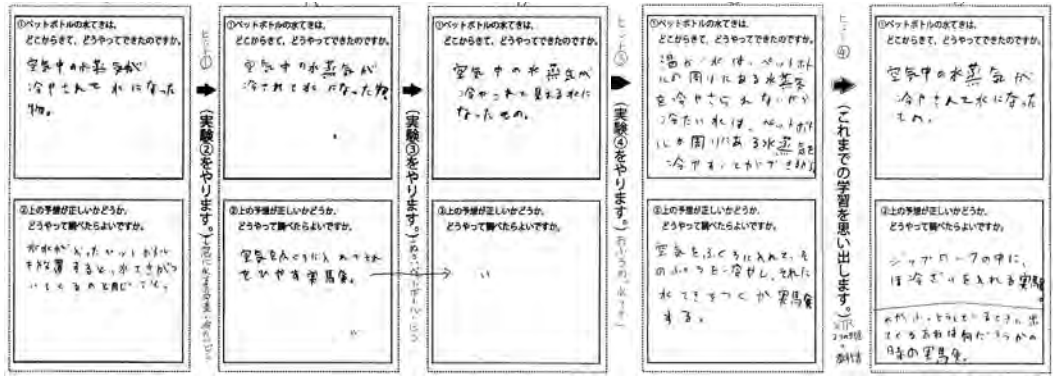 ①ペットボトルの水てきは、
どこからきて、どうやってできたのですか。
空気中の水蒸気が
冷やされて水になった
物。
②上の予想が正しいかどうか、
どうやって調べたらよいですか。
ヒント①
(実験②をやります。)
①ペットボトルの水てきは、
どこからきて、どうやってできたのですか。
空気中の水蒸気が
冷されて水になった物
②上の予想が正しいかどうか、
どうやって調べたらよいですか。
空気をふくろに入れてそれ
をひやす実験。
(実験③をやります。)
①ペットボトルの水てきは、
どこからきて、どうやってできたのですか。
空気中の水蒸気が
冷やされて見える水に
なったもの。
②上の予想が正しいかどうか、
どうやって調べたらよいですか。
〃
ヒント③
(実験④をやります。)
①ペットボトルの水てきは、
どこからきて、どうやってできたのですか。
温かい水は、ペットボト
ルの周りにある水蒸気
を冷やさられないから
冷たい水は、ペットボト
ルの周りにある水蒸気を
冷やすことができる
②上の予想が正しいかどうか、
どうやって調べたらよいですか。
空気をふくろに入れて、そ
のふくろを冷やし、それに
水てきをつくか実験
する。
ヒント④
(これまでの学習を思い出します。)
①ペットボトルの水てきは、
どこからきて、どうやってできたのですか。
空気中の水蒸気が
冷やされて水になった
もの。
②上の予想が正しいかどうか、
どうやって調べたらよいですか。
ジップロックの中に、
ほ冷ざいを入れる実験。
時の実験。